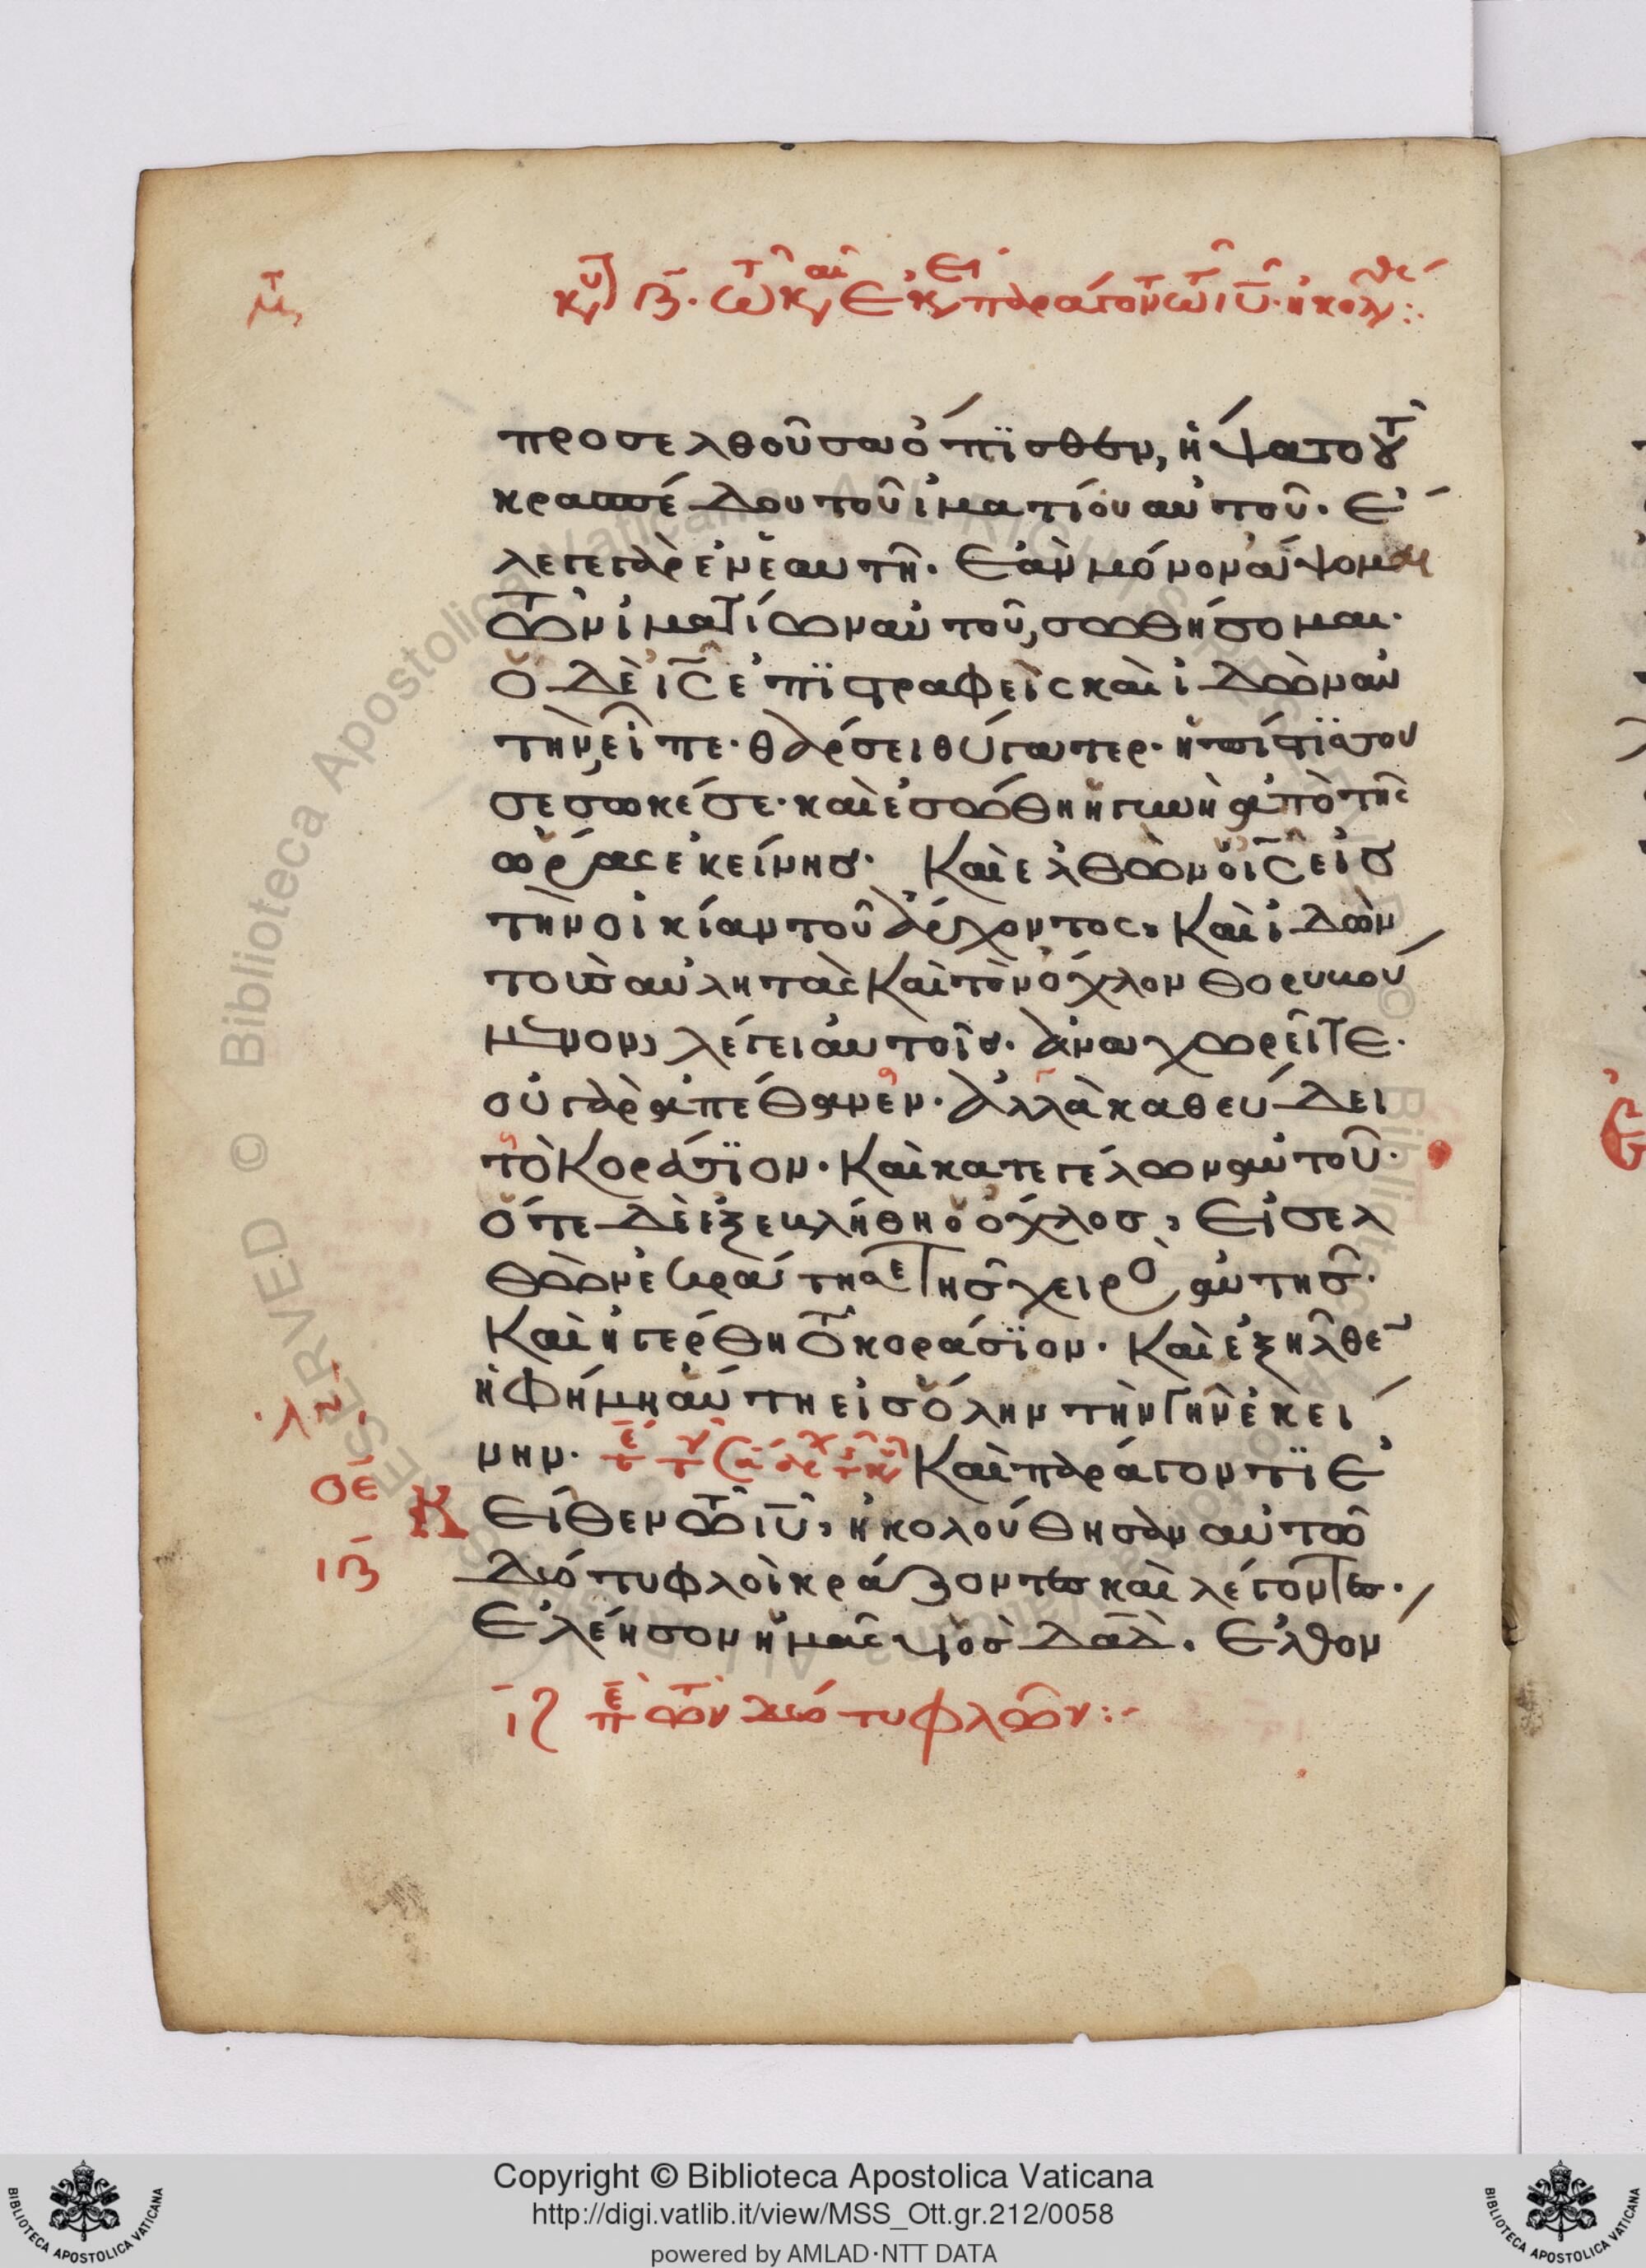 προσελθοῦσα ὄπϊσθεν, ἥψατο τοῦ
κρασπέδου τοῦ ἱματίου αὐτοῦ. ἔ
λεγε γὰρ ἐν ἑαυτῆ. Ἐὰν μόνον ἅψομαι
τῶν ἱματίων αὐτοῦ, σωθήσομαι.
ὁ δὲ ις ἐπϊστραφεὶς καὶ ἰδὼν αὐ
τὴν, εἶπε. θάρσει θύγατερ. ἡ πίστϊς σου
σέσωκέ σε. καὶ ἐσώθη ἡ γυνὴ ἀπὸ τῆς
ὥρας ἐκείνης. Καὶ ἐλθὼν ὁ ις εἰς
τὴν οἰκίαν τοῦ ἄρχοντος, Καὶ ἰδὼν
τοὺς αὐλητὰς Καὶ τὸν ὄχλον θορυβού
μενον, λέγει αὐτοῖς. ἀναχωρεῖτε.
οὐ γὰρ ἀπέθανεν. ἀλλὰ καθεύδει
τὸ Κοράσϊον. Καὶ κατεγέλων αὐτοῦ.
ὅτε δὲ ἐξεβλήθη ὁ ὄχλος, Εἰσελ
θὼν ἐκράτησε τῆς χειρὸς αὐτῆς.
Καὶ ἠγέρθη τὸ κοράσϊον. Καὶ ἐξῆλθεν
ἡ φήμη αὕτη εἰς ὅλην τὴν γῆν ἐκεί
νην. Καὶ παράγοντϊ ἐ
κεῖθεν τῶ ιυ, ἠκολούθησαν αὐτῶ
δύο τυφλοὶ κράζοντες καὶ λέγοντες.
Ἐλέησον ἡμᾶς υἱὸς δαδ. Ἐλθόν
ιζ π τῶν δύο τυφλῶν:
Copyright © Biblioteca Apostolica Vaticana
http://digi.vatlib.it/view/MSS_Ott.gr.212/0058
powered by AMLAD·NTT DATA